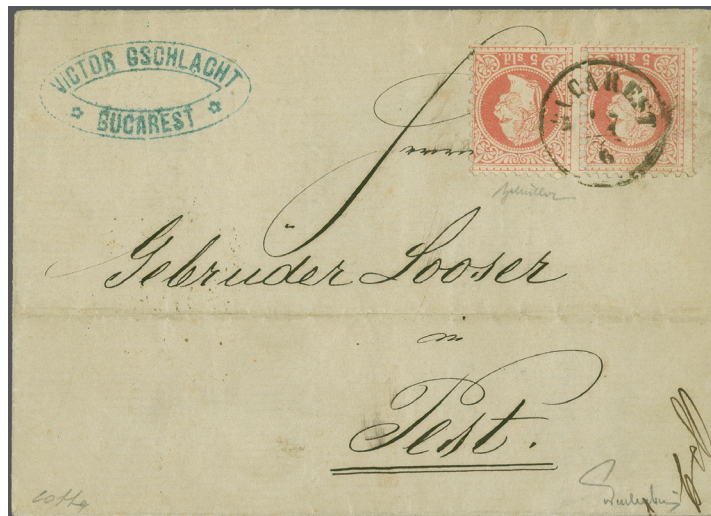 VICTOR GSCHLACHT
BUCAREST
5 sld
5 sld
BUCAREST
7
6
Herrn
Gebruder Looser
in
Pest.